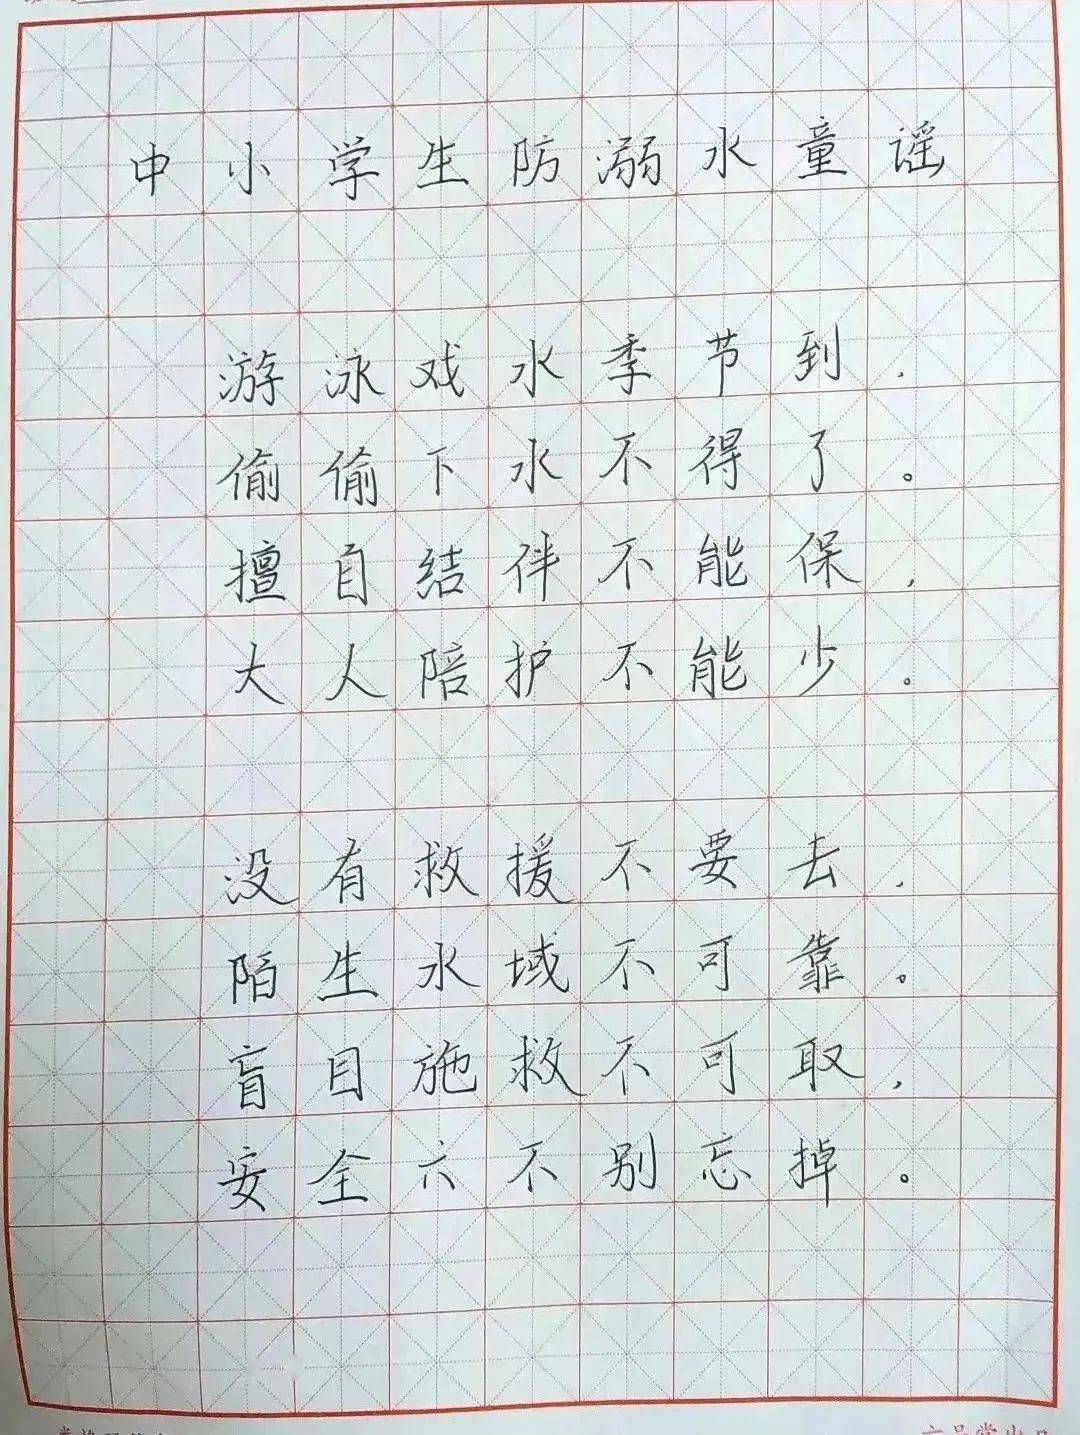 中小学生防溺水童谣
游泳戏水季节到,
偷偷下水不得了。
擅自结伴不能保,
大人陪护不能少。
没有救援不要去,
陌生水域不可靠。
盲目施救不可取,
安全六不别忘掉。